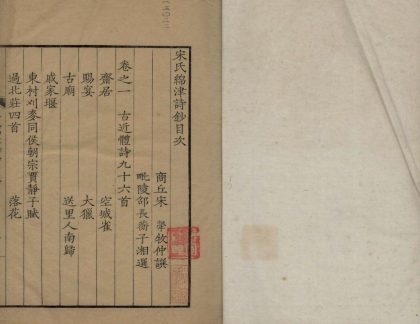 宋氏綿津詩鈔目次
商丘宋犖牧仲譔
毗陵邵長蘅子湘選
卷之一 古近體詩九十六首
齋居 空城雀
賜宴 大獵
古廟 送里人南歸
戚家堰
東村刈麥同侯朝宗賈靜子賦
過北莊四首 落花